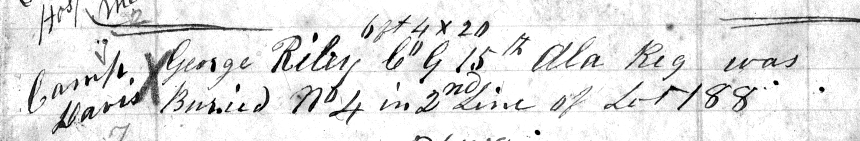 Hosp
6 ft 4 x 20
Camp X George Riley Co G 15th Ala Reg was
Davis Buried No 4 in 2nd Line of Lot 188.